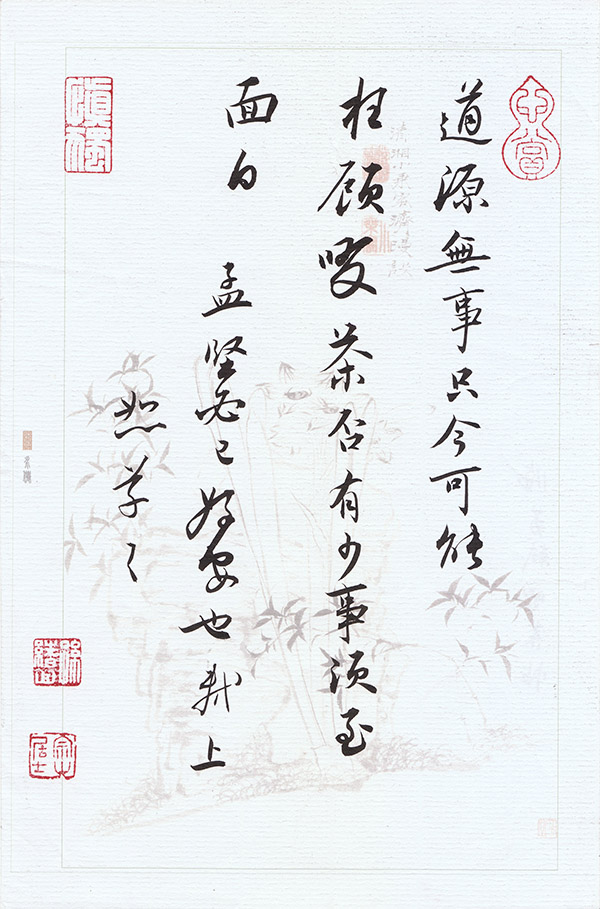 道源無事只今可能
枉顧啜茶否有少事須至
面白 孟堅必已好安也軾上
恕草々